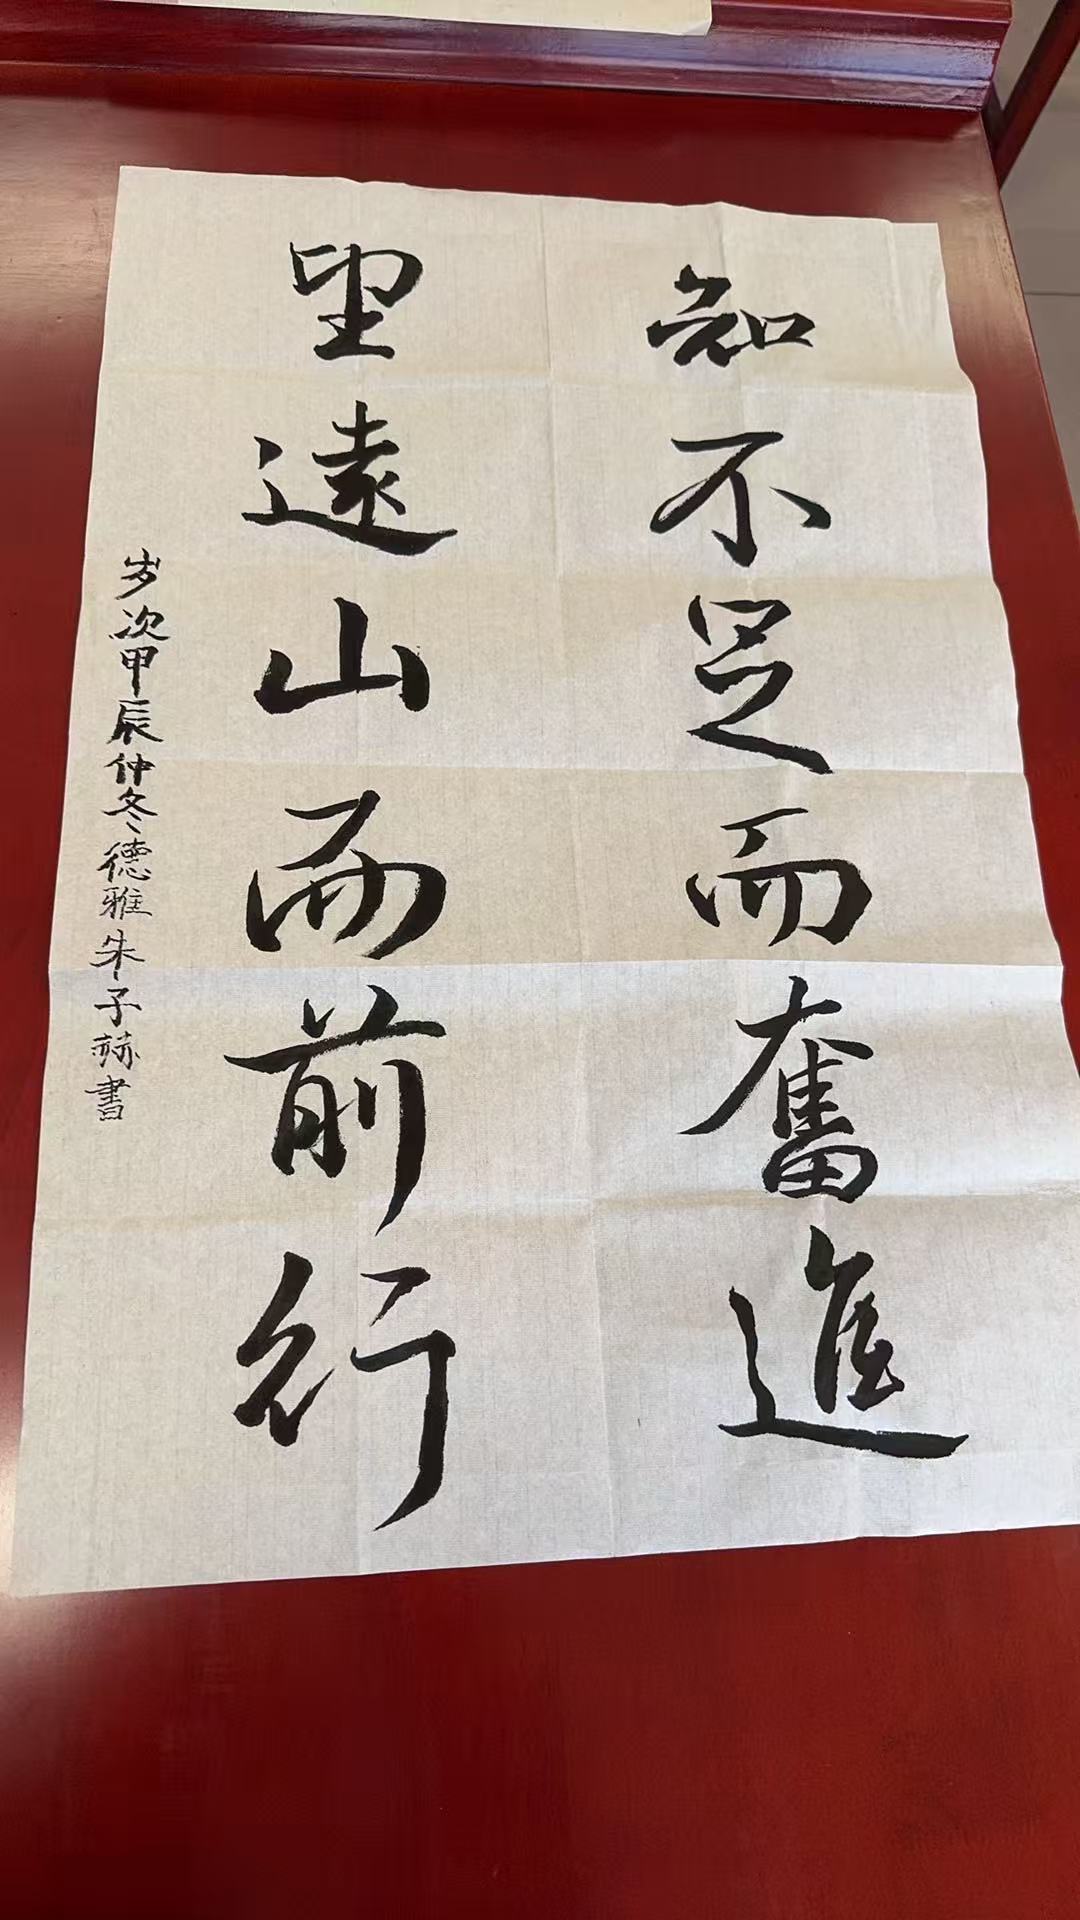 知不足而奮進
望遠山而前行
岁次甲辰仲冬德雅朱子赫書